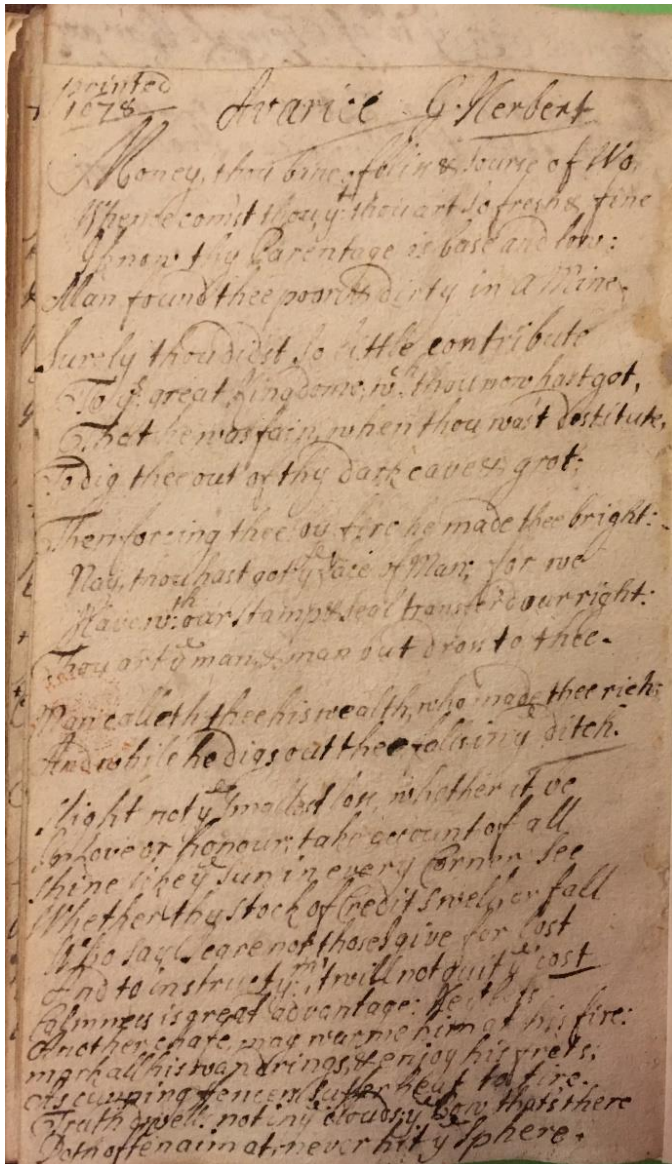 printed
1678
Avarice G. Herbert
Money, thou bane of blis & sourse of Wo,
Whence com'st thou, yt thou art so fresh & fine
I know thy Parentage is base and low:
Man found thee poor & dirty in a Mine.
Surely thou didst so little contribute
To ys great Kingdome, wch thou now hast got,
That he was fain, when thou wast destitute,
To dig thee out of thy dark cave & grot:
Then forcing thee by fire he made thee bright:
Nay, thou hast got ye face of Man; for we
Have wth our stamp & seal transferd our right:
Thou art ye man, & man but dross to thee.
Man calleth thee his wealth, who made thee rich;
And while he digs out thee, falls in ye ditch.
Slight not ye smallest loss, whether it be
In Love or honour; take account of all
Shine like ye sun in every Corner: See
Whether thy stock of Credit swell, or fall
Who say I care not, those I give for lost
And to instruct ym, 't will not quit ye cost
Calmness is great advantage: He it lets
Another chafe, may warme him at his fire:
mark all his wandrings, & enjoy his frets;
As cunning fencers suffer heat to tire.
Truth dwells not in ye clouds, ye bow thats there
Doth often aim at, never hit ye Sphere.